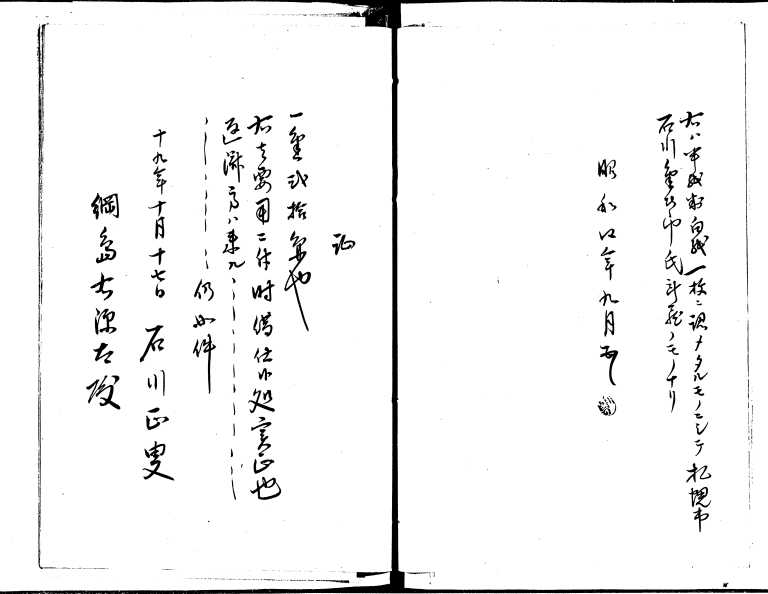 右ハ半紙判白紙一枚ニ認メタルモノニシテ札幌市
石川金次郎氏所蔵ノモノナリ
昭和四年九月写
証
一金弐拾角也
右之要用ニ付時借仕候処実正也
返済之ハ来九
仍如件
十九年十月十七日 石川正叟
綱島右源太殿